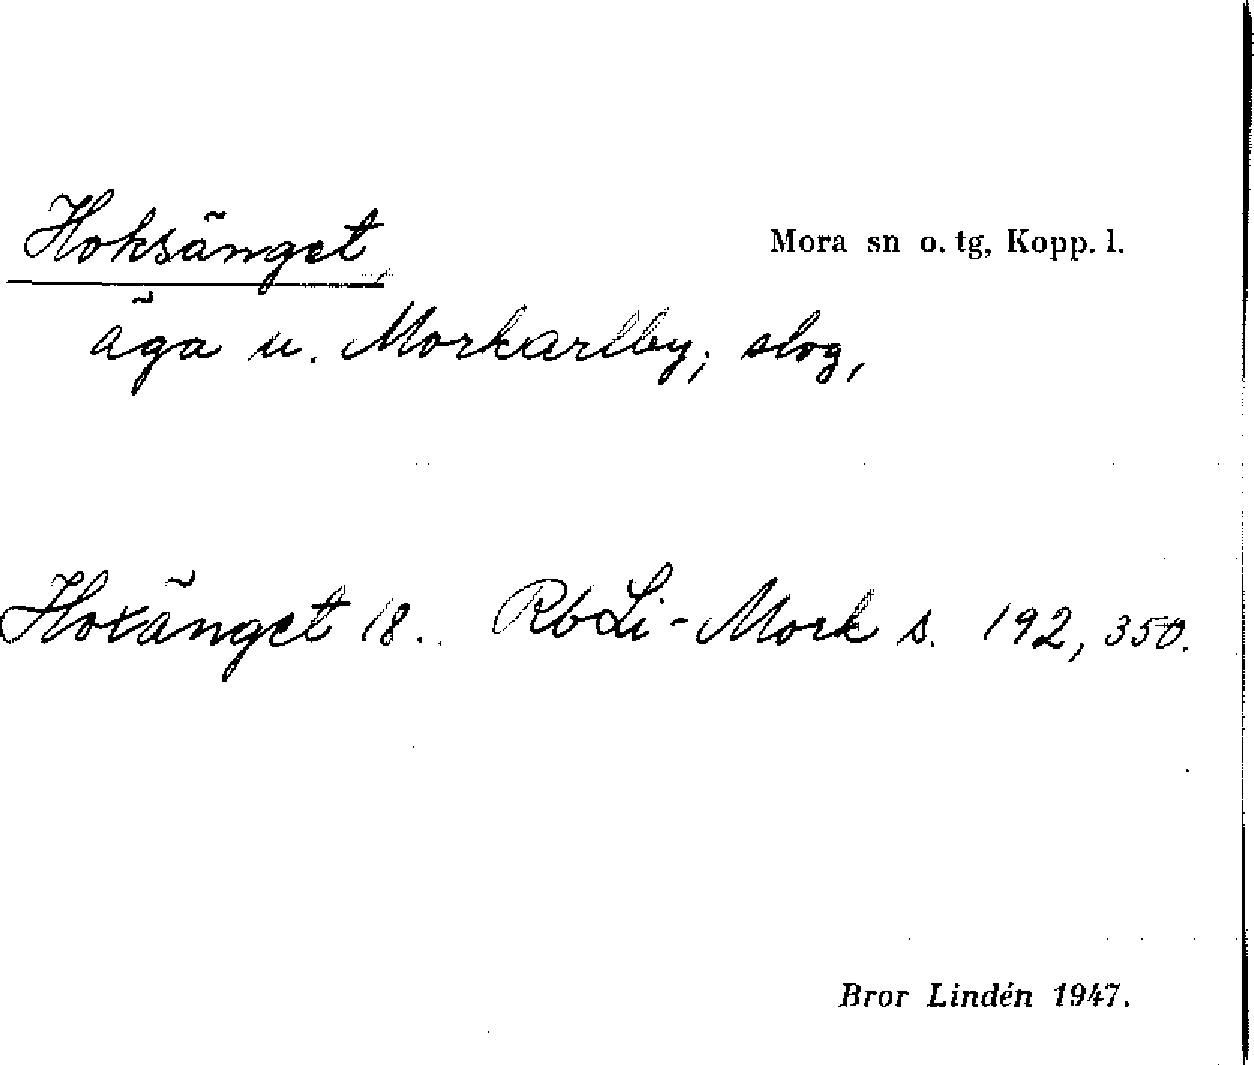 Hoksänget, Mora sn o. tg, Kopp. l.
äga u. Morkarlby; slog,
Hoxänget 18.. RbLi-Mork s. 192, 350.
Bror Lindén 1947.